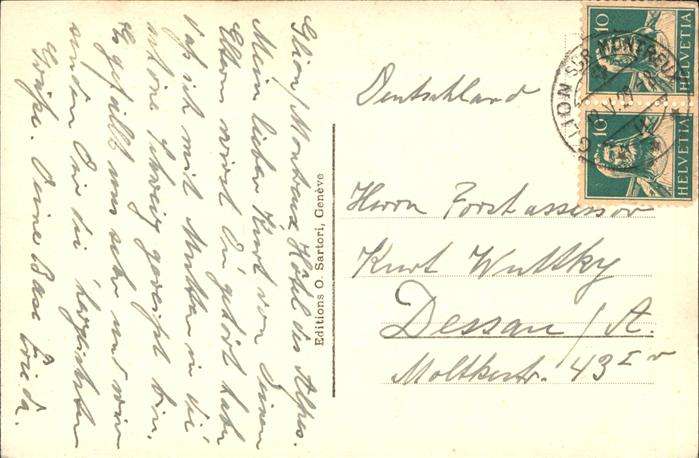 Glion/Montreux Hôtel des Alpes.
Mein lieber Kurt von Deinen
Eltern wirst Du gehört haben
daß ich mit Mutter in die
schöne Schweiz gereist bin.
Es gefällt uns sehr und wir
senden Dir die herzlichsten
Grüße. Deine Base Frieda.
Editions O. Sartori, Genève
Deutschland
Herrn Forstassessor
Kurt Wuttky
Dessau/A.
Moltkestr. 43 I r
GLION SUR MONTREUX
10
HELVETIA
10
HELVETIA